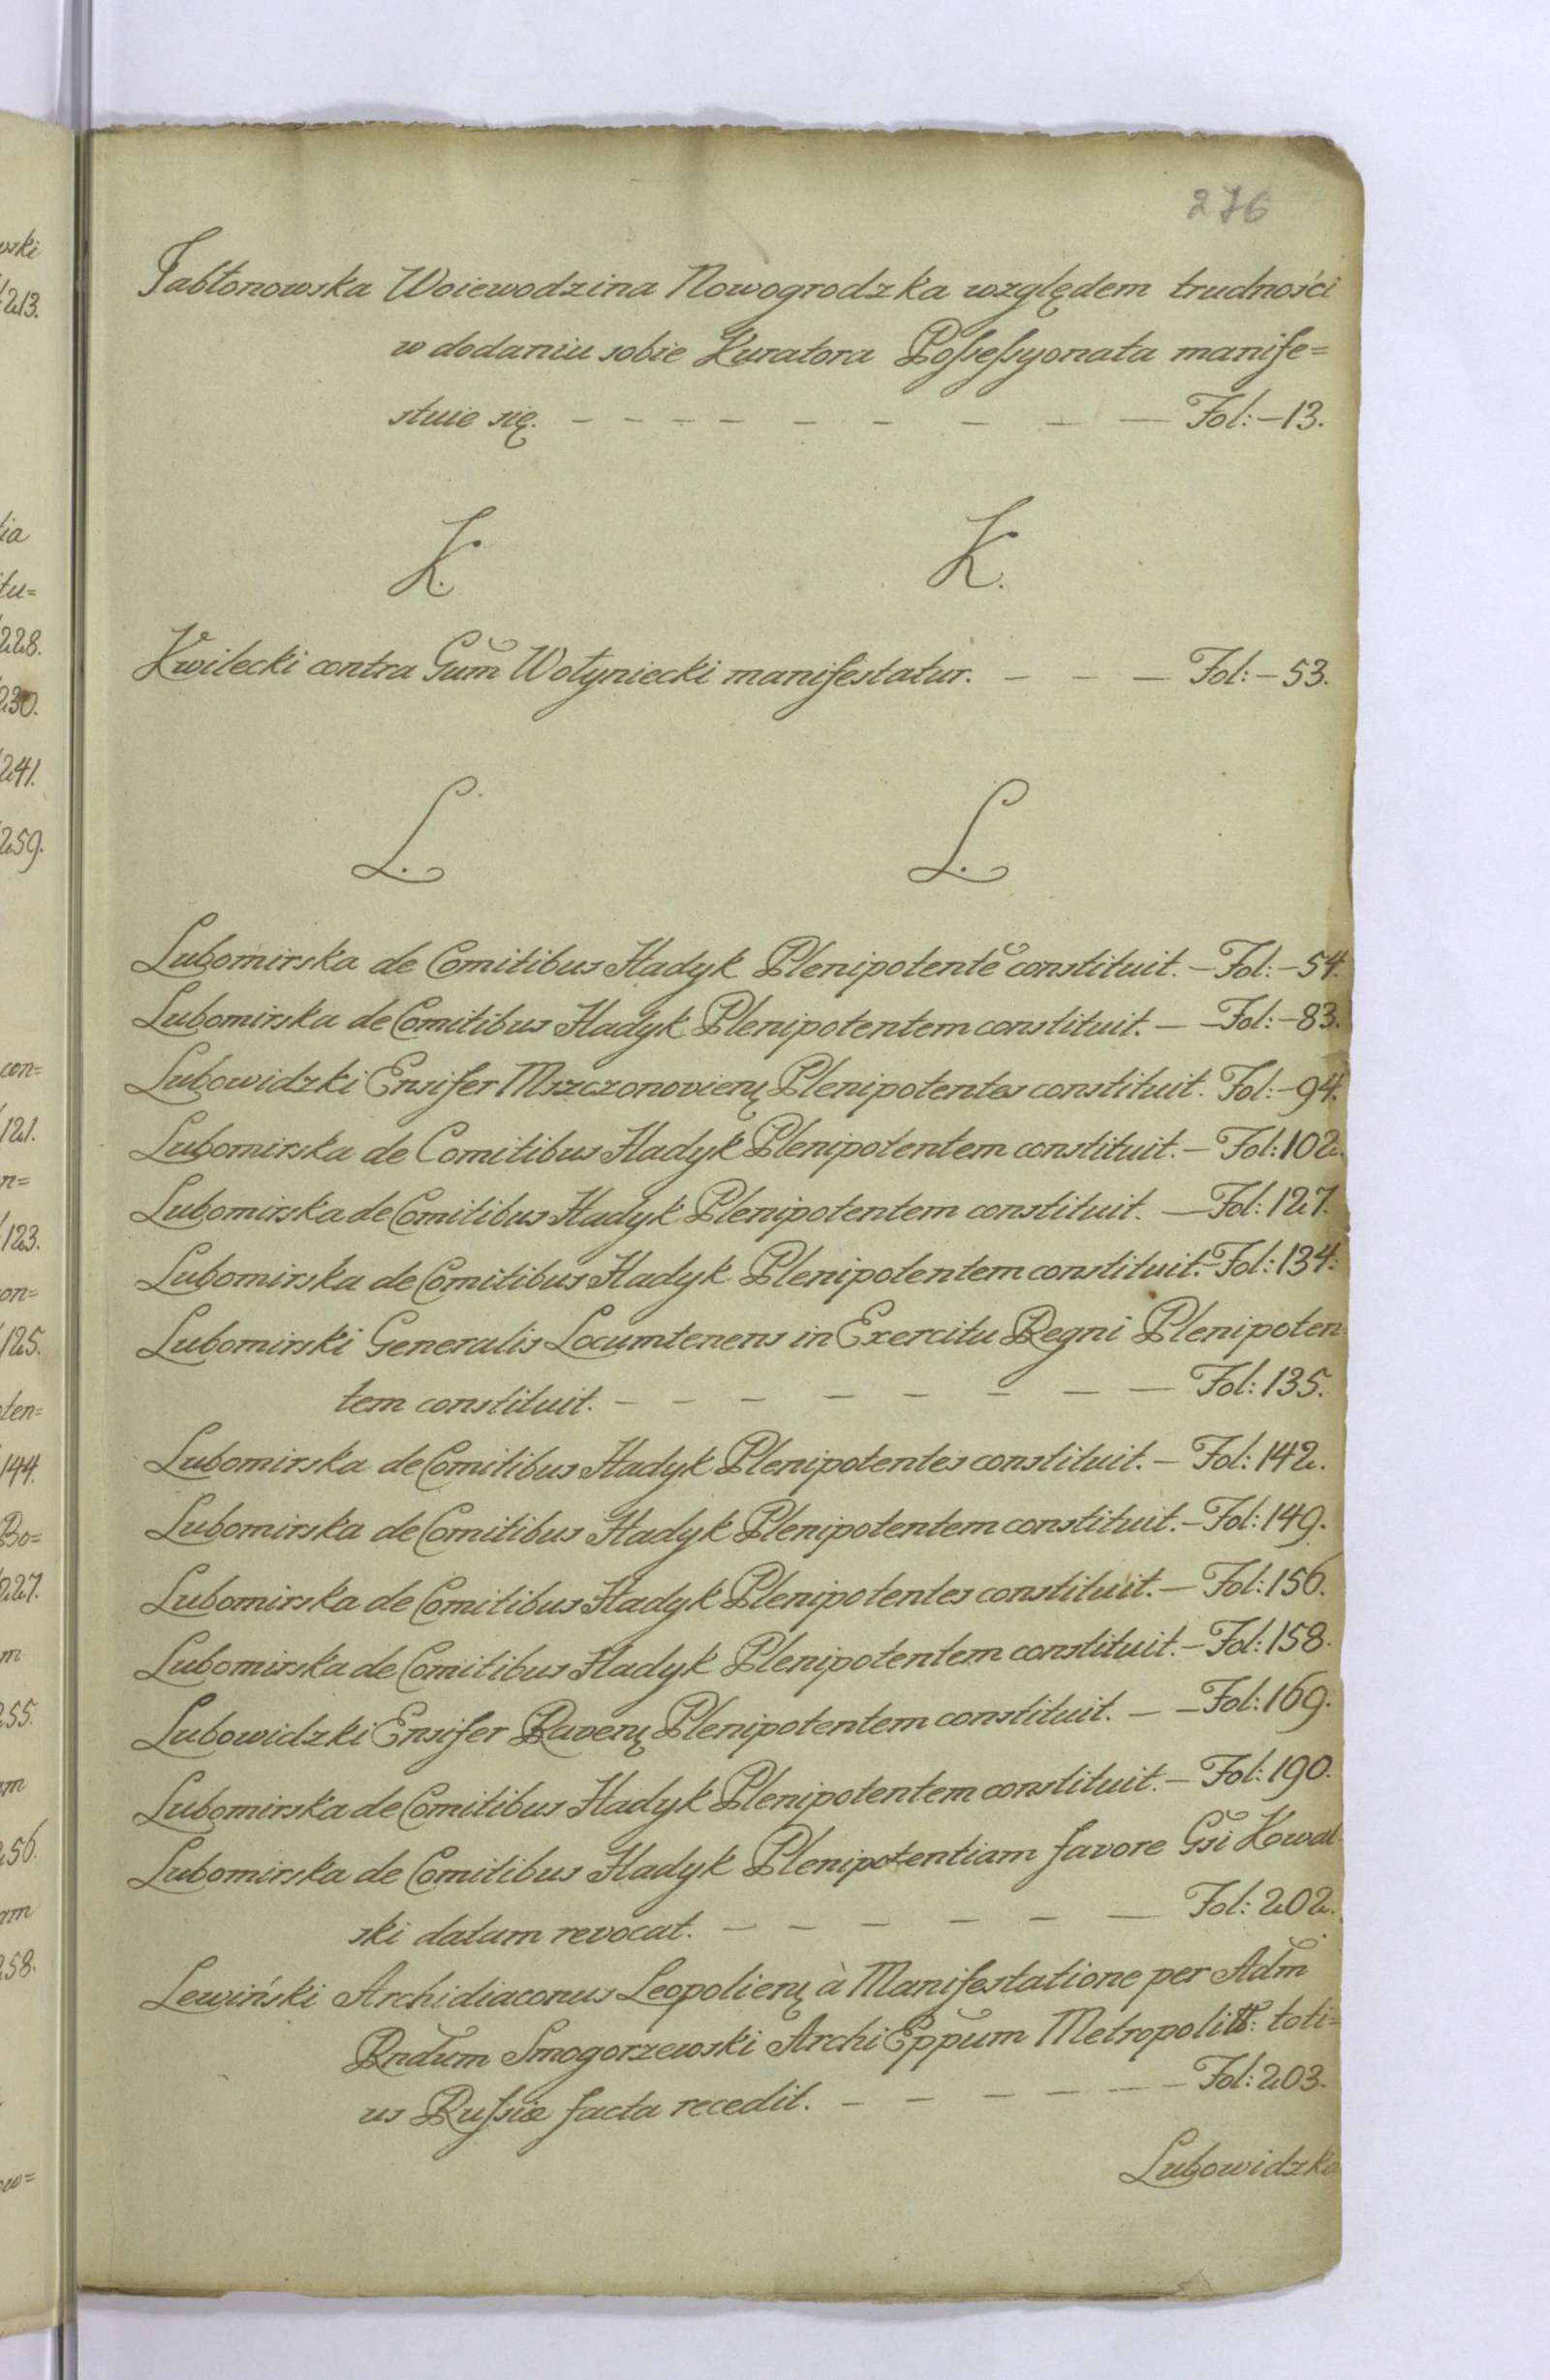 276
Jabłonowska Woiewodzina Nowogrodzka względem trudności
w dodaniu sobie Kuratora Possessyonata manife=
stuie się. - - - - - - - - - Fol: - 13.
K. K.
Kwilecki contra Gum̃ Wołyniecki manifestatur. - - - Fol: - 53.
L. L.
Lubomirska de Comitibus Hadyk Plenipotentẽ constituit. - Fol: - 54.
Lubomirska de Comitibus Hadyk Plenipotentem constituit. - - Fol: - 83.
Lubowidzki Ensifer Mszczonovienꝫ Plenipotentes constituit. Fol: - 94.
Lubomirska de Comitibus Hadyk Plenipotentem constituit. - Fol: 102.
Lubomirska de Comitibus Hadyk Plenipotentem constituit. - Fol: 127.
Lubomirska de Comitibus Hadyk Plenipotentem constituit. Fol: 134.
Lubomirski Generalis Locumtenens in Exercitu Regni Plenipoten
tem constituit. - - - - - - - - Fol: 135.
Lubomirska de Comitibus Hadyk Plenipotentes constituit. - Fol: 142.
Lubomirska de Comitibus Hadyk Plenipotentem constituit. - Fol: 149.
Lubomirska de Comitibus Hadyk Plenipotentes constituit. - Fol: 156.
Lubomirska de Comitibus Hadyk Plenipotentem constituit. - Fol: 158.
Lubowidzki Ensifer Ravenꝫ Plenipotentem constituit. - - Fol: 169.
Lubomirska de Comitibus Hadyk Plenipotentem constituit. - Fol: 190.
Lubomirska de Comitibus Hadyk Plenipotentiam favore Gsi Kowal
ski datam revocat. - - - - - - - Fol: 202.
Lewiński Archidiaconus Leopolienꝫ à Manifestatione per Adm̃
Rndum Smogorzewski ArchiEppum Metropolit: toti=
us Russiæ facta recedit. - - - - - - Fol: 203.
Lubowidzki